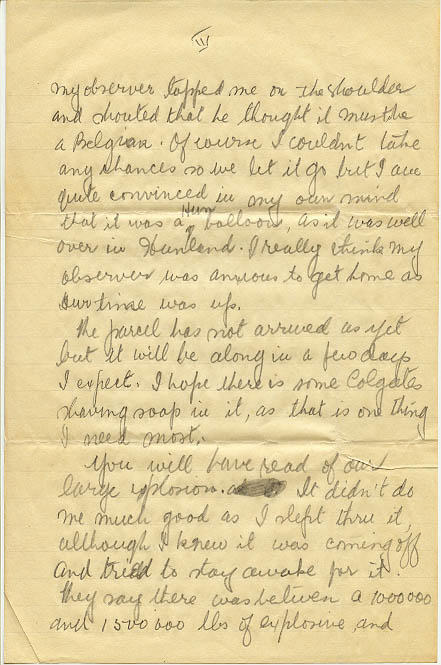 III
my observer tapped me on the shoulder
and shouted that he thought it must be
a Belgian. Of course I couldn't take
any chances so we let it go but I am
quite convinced in my own mind
that it was a Hun balloon, as it was well
over in Hunland. I really think my
observer was anxious to get home as
our time was up.
The parcel has not arrived as yet
but it will be along in a few days
I expect. I hope there is some Colgates
shaving soap in it, as that is one thing
I need most.
You will have read of our
large explosion. It didn't do
me much good as I slept thru it,
although I knew it was coming off
and tried to stay awake for it.
They say there was between a 1000000
and 1500000 lbs of explosive, and